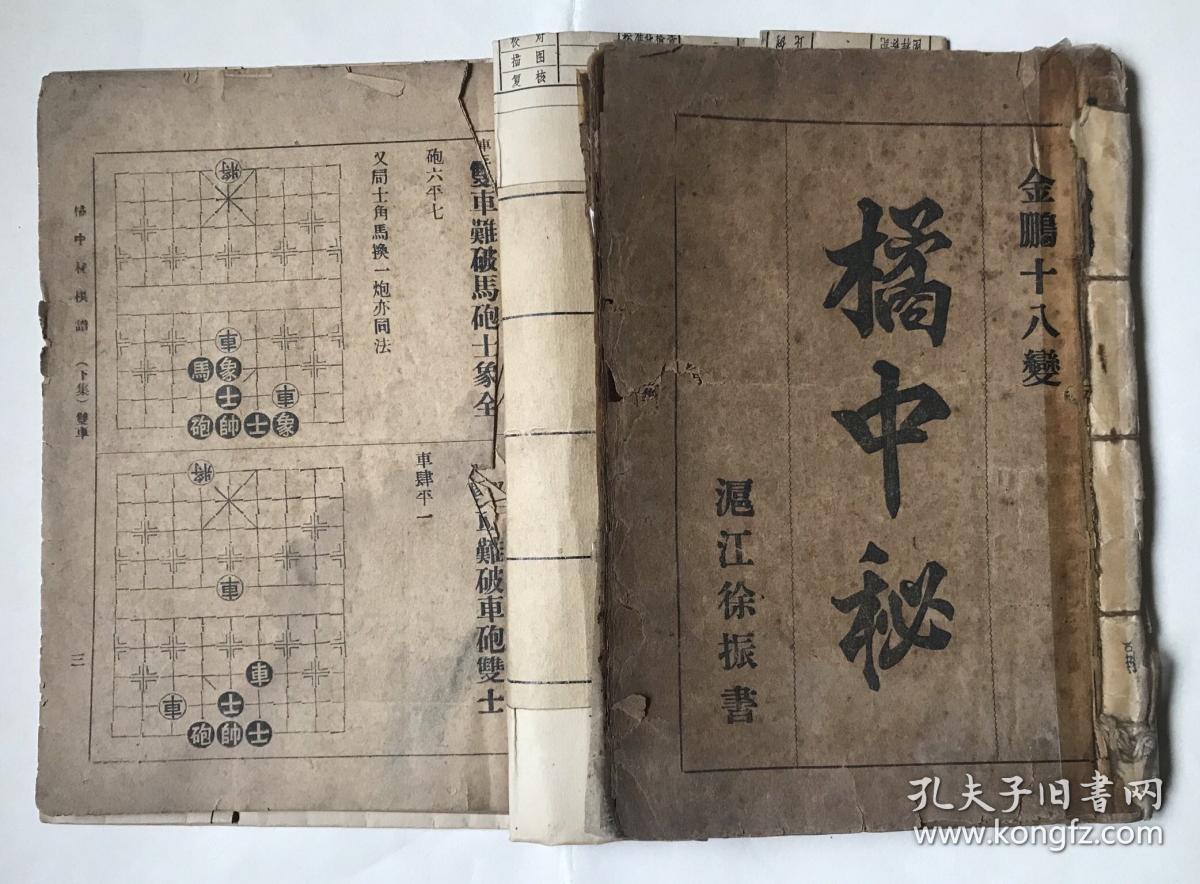 金鵬十八變
橘中秘
滬江徐振書
雙車難破馬砲士象全
砲六平七
又局士角馬換一炮亦同法
將
車
馬象
士車
砲帥士象
難破車砲雙士
車肆平一
將
車
車
車士
砲帥士
橘中秘棋譜 (下集) 雙車
三
对
图
核
校
描
复
孔夫子旧书网
www.kongfz.com